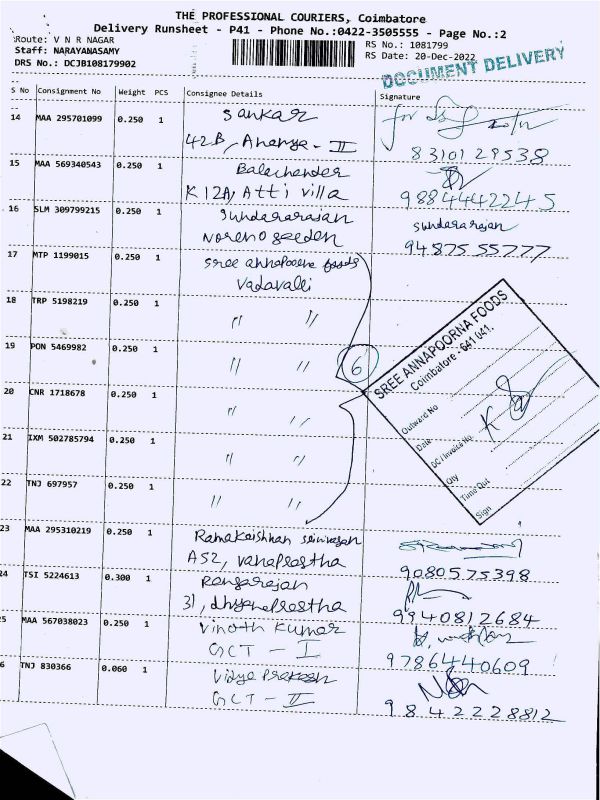 THE PROFESSIONAL COURIERS, Coimbatore
Delivery Runsheet - P41 - Phone No.:0422-3505555 - Page No.:2
Route: V N R NAGAR
Staff: NARAYANASAMY
DRS No.: DCJB108179902
RS No.: 1081799
RS Date: 20-Dec-2022
DOCUMENT DELIVERY
S No Consignment No Weight PCS Consignee Details Signature
14 MAA 295701099 0.250 1 Sankar
42B, Ananya - II
8310129538
15 MAA 569340543 0.250 1 Balachander
K 12A, Atti villa
9884442245
16 SLM 309799215 0.250 1 Sundararajan sundararajan
94875 55777
17 MTP 1199015 0.250 1 Sree annapoorna foods
Vadavalli
18 TRP 5198219 0.250 1 " "
19 PON 5469982 0.250 1 " " 6
20 CNR 1718678 0.250 1 " "
21 IXM 502785794 0.250 1 " "
22 TNJ 697957 0.250 1 " "
SREE ANNAPOORNA FOODS
Coimbatore - 641 041.
Outward No
Date
DC / Invoice No.
Qty
Time Out
Sign
23 MAA 295310219 0.250 1 Ramakrishnan srinivasan
A52, vanaprastha
9080575398
24 TSI 5224613 0.300 1 Rangarajan
31, dhyanaprastha
9940812684
25 MAA 567038023 0.250 1 Vinoth Kumar
GCT - I
9786440609
26 TNJ 830366 0.060 1 Vidya Prakash
GCT - II
9842228812